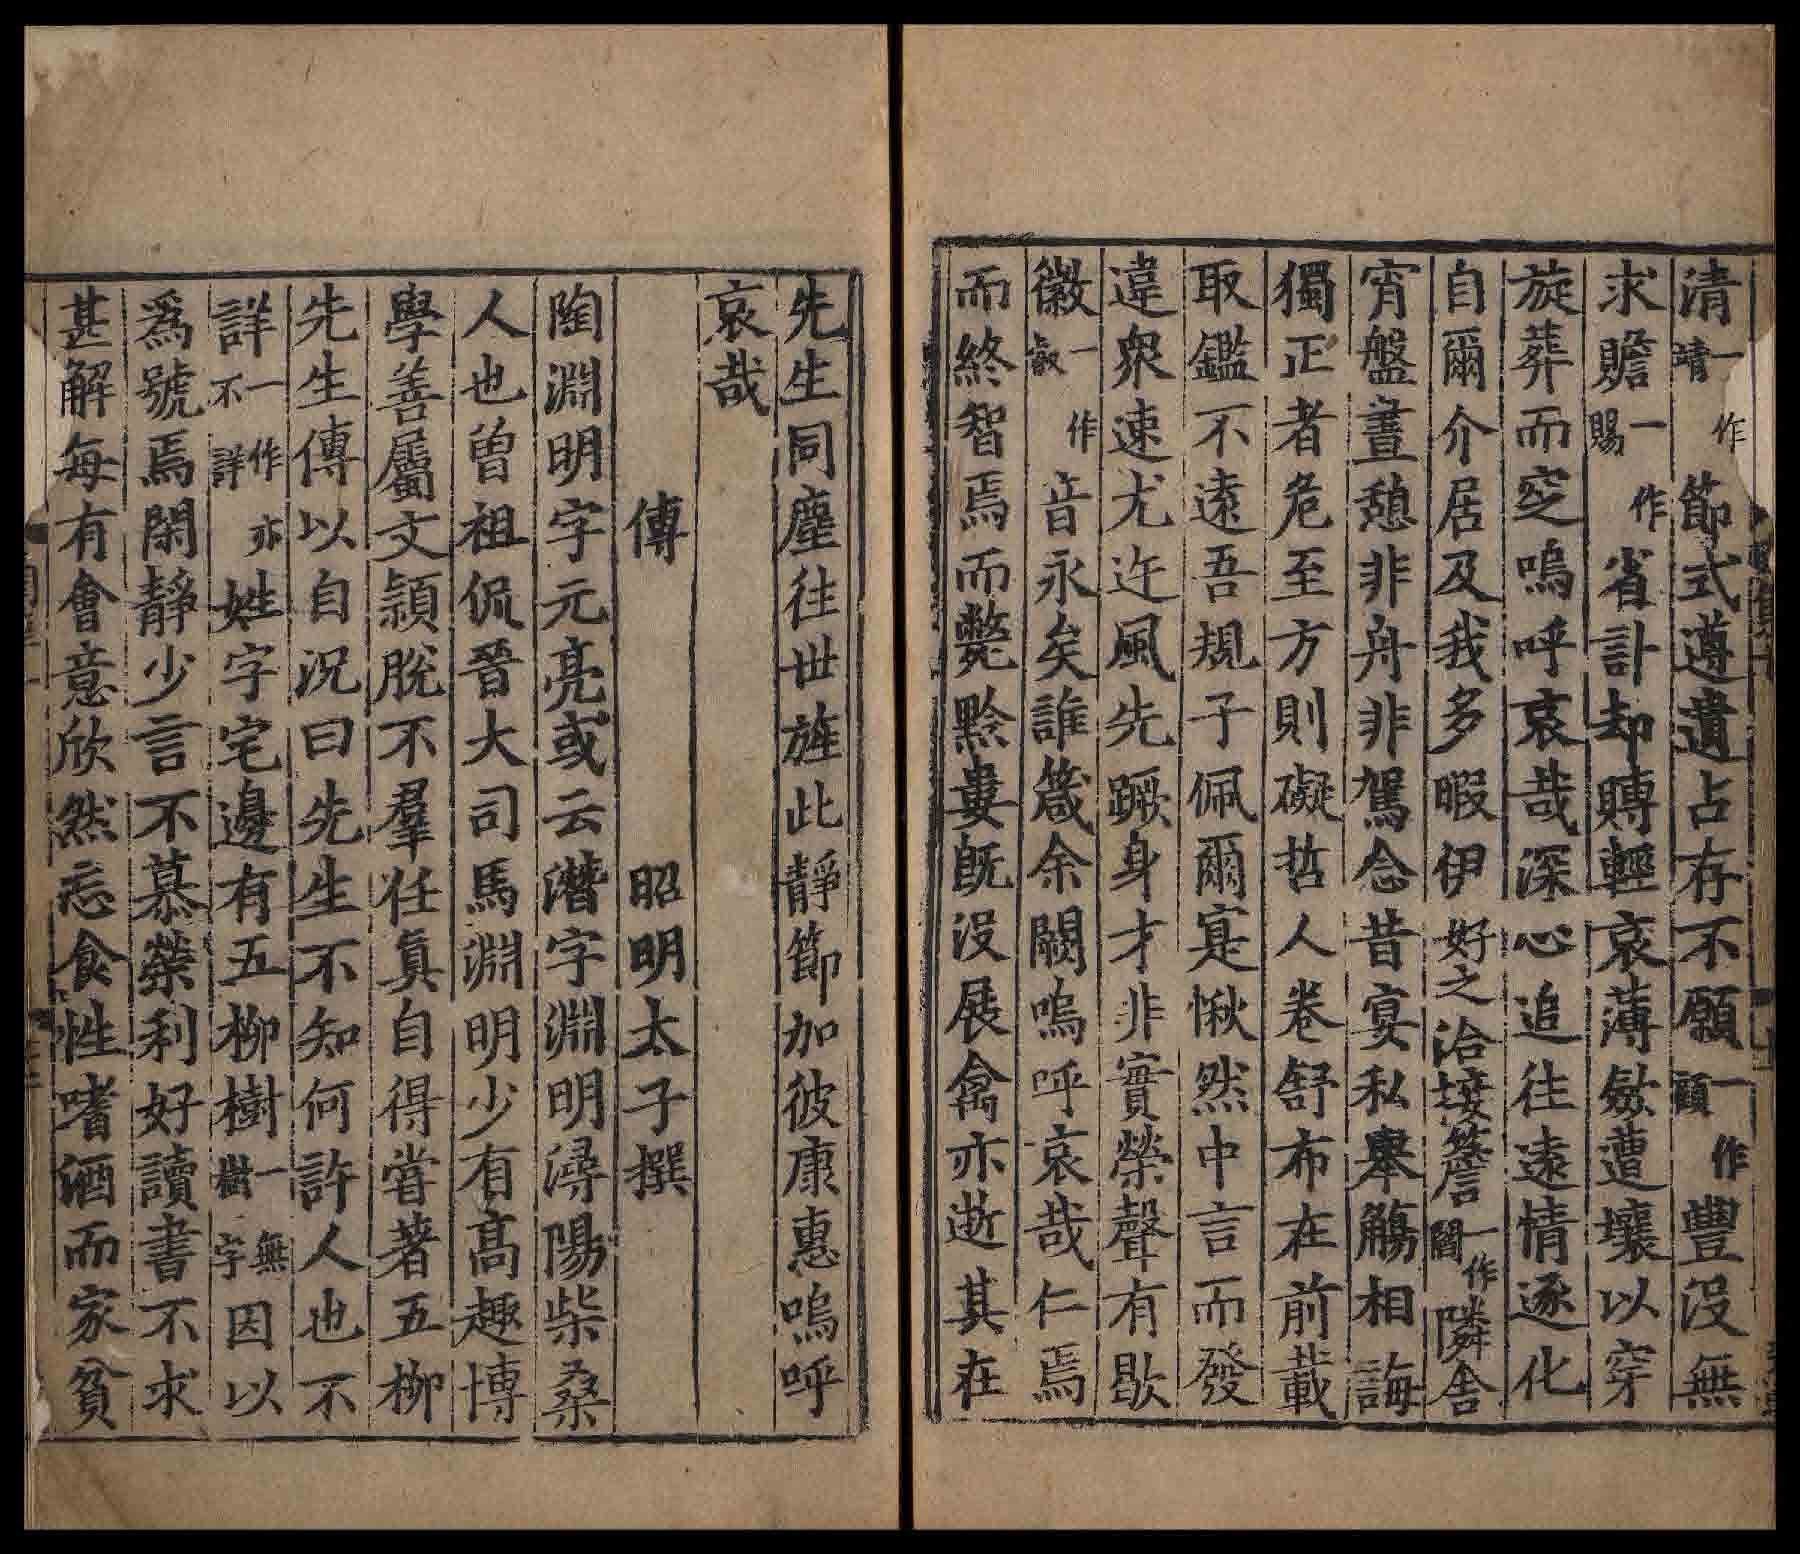 清一作靖節式遵遺占存不願一作顧豐没無
求贍一作賜省訃却賻輕哀薄斂遭壤以穿
旋葬而窆嗚呼哀哉深心追往遠情逐化
自爾介居及我多暇伊好之洽接簷一作閻隣舍
宵盤晝憩非舟非駕念昔宴私舉觴相誨
獨正者危至方則礙哲人卷舒布在前載
取鑑不遠吾規子佩爾寔愀然中言而發
違衆速尤迕風先蹶身才非實榮聲有歇
徽一作叡音永矣誰箴余闕嗚呼哀哉仁焉
而終智焉而斃黔婁既没展禽亦逝其在
先生同塵往世旌此靖節加彼康惠嗚呼
哀哉
傳　昭明太子撰
陶淵明字元亮或云潛字淵明潯陽柴桑
人也曾祖侃晉大司馬淵明少有高趣博
學善屬文穎脫不羣任真自得嘗著五柳
先生傳以自況曰先生不知何許人也不
詳一作亦不詳姓字宅邊有五柳樹一無樹字因以
爲號焉閑靜少言不慕榮利好讀書不求
甚解每有會意欣然忘食性嗜酒而家貧